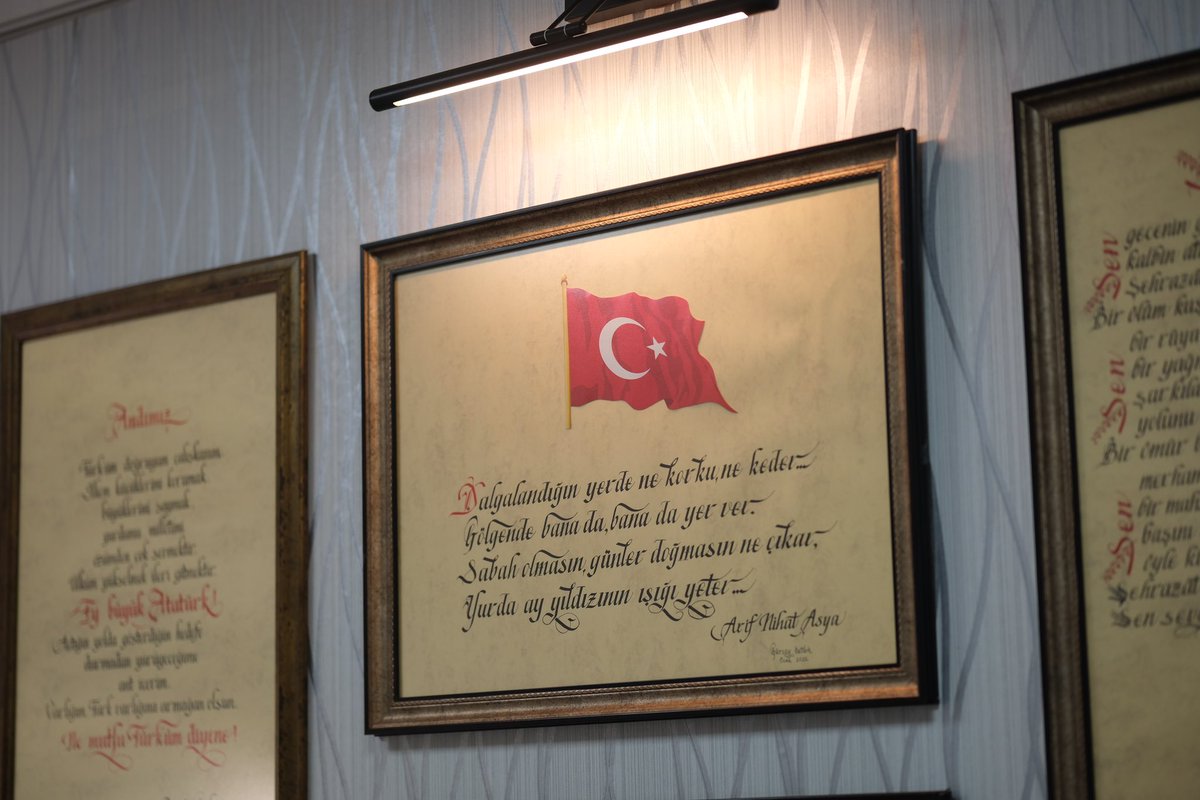 Andımız
Türküm doğruyum çalışkanım.
İlkem küçüklerimi korumak,
büyüklerimi saymak,
yurdumu milletimi
özümden çok sevmektir.
Ülküm yükselmek ileri gitmektir.
Ey büyük Atatürk!
Açtığın yolda gösterdiğin hedefe
durmadan yürüyeceğime
ant içerim.
Varlığım Türk varlığına armağan olsun.
Ne mutlu Türküm diyene!
Dalgalandığın yerde ne korku, ne keder...
Gölgende bana da, bana da yer ver.
Sabah olmasın, günler doğmasın ne çıkar;
Yurda ay yıldızının ışığı yeter...
Arif Nihat Asya
Sen gecenin
kalbin
Şehrazat
Bir ölüm
bir rüya
bir
Sen
yolunu
Bir ömür
bir
Sen başını
öyle
Şehrazat
Sen